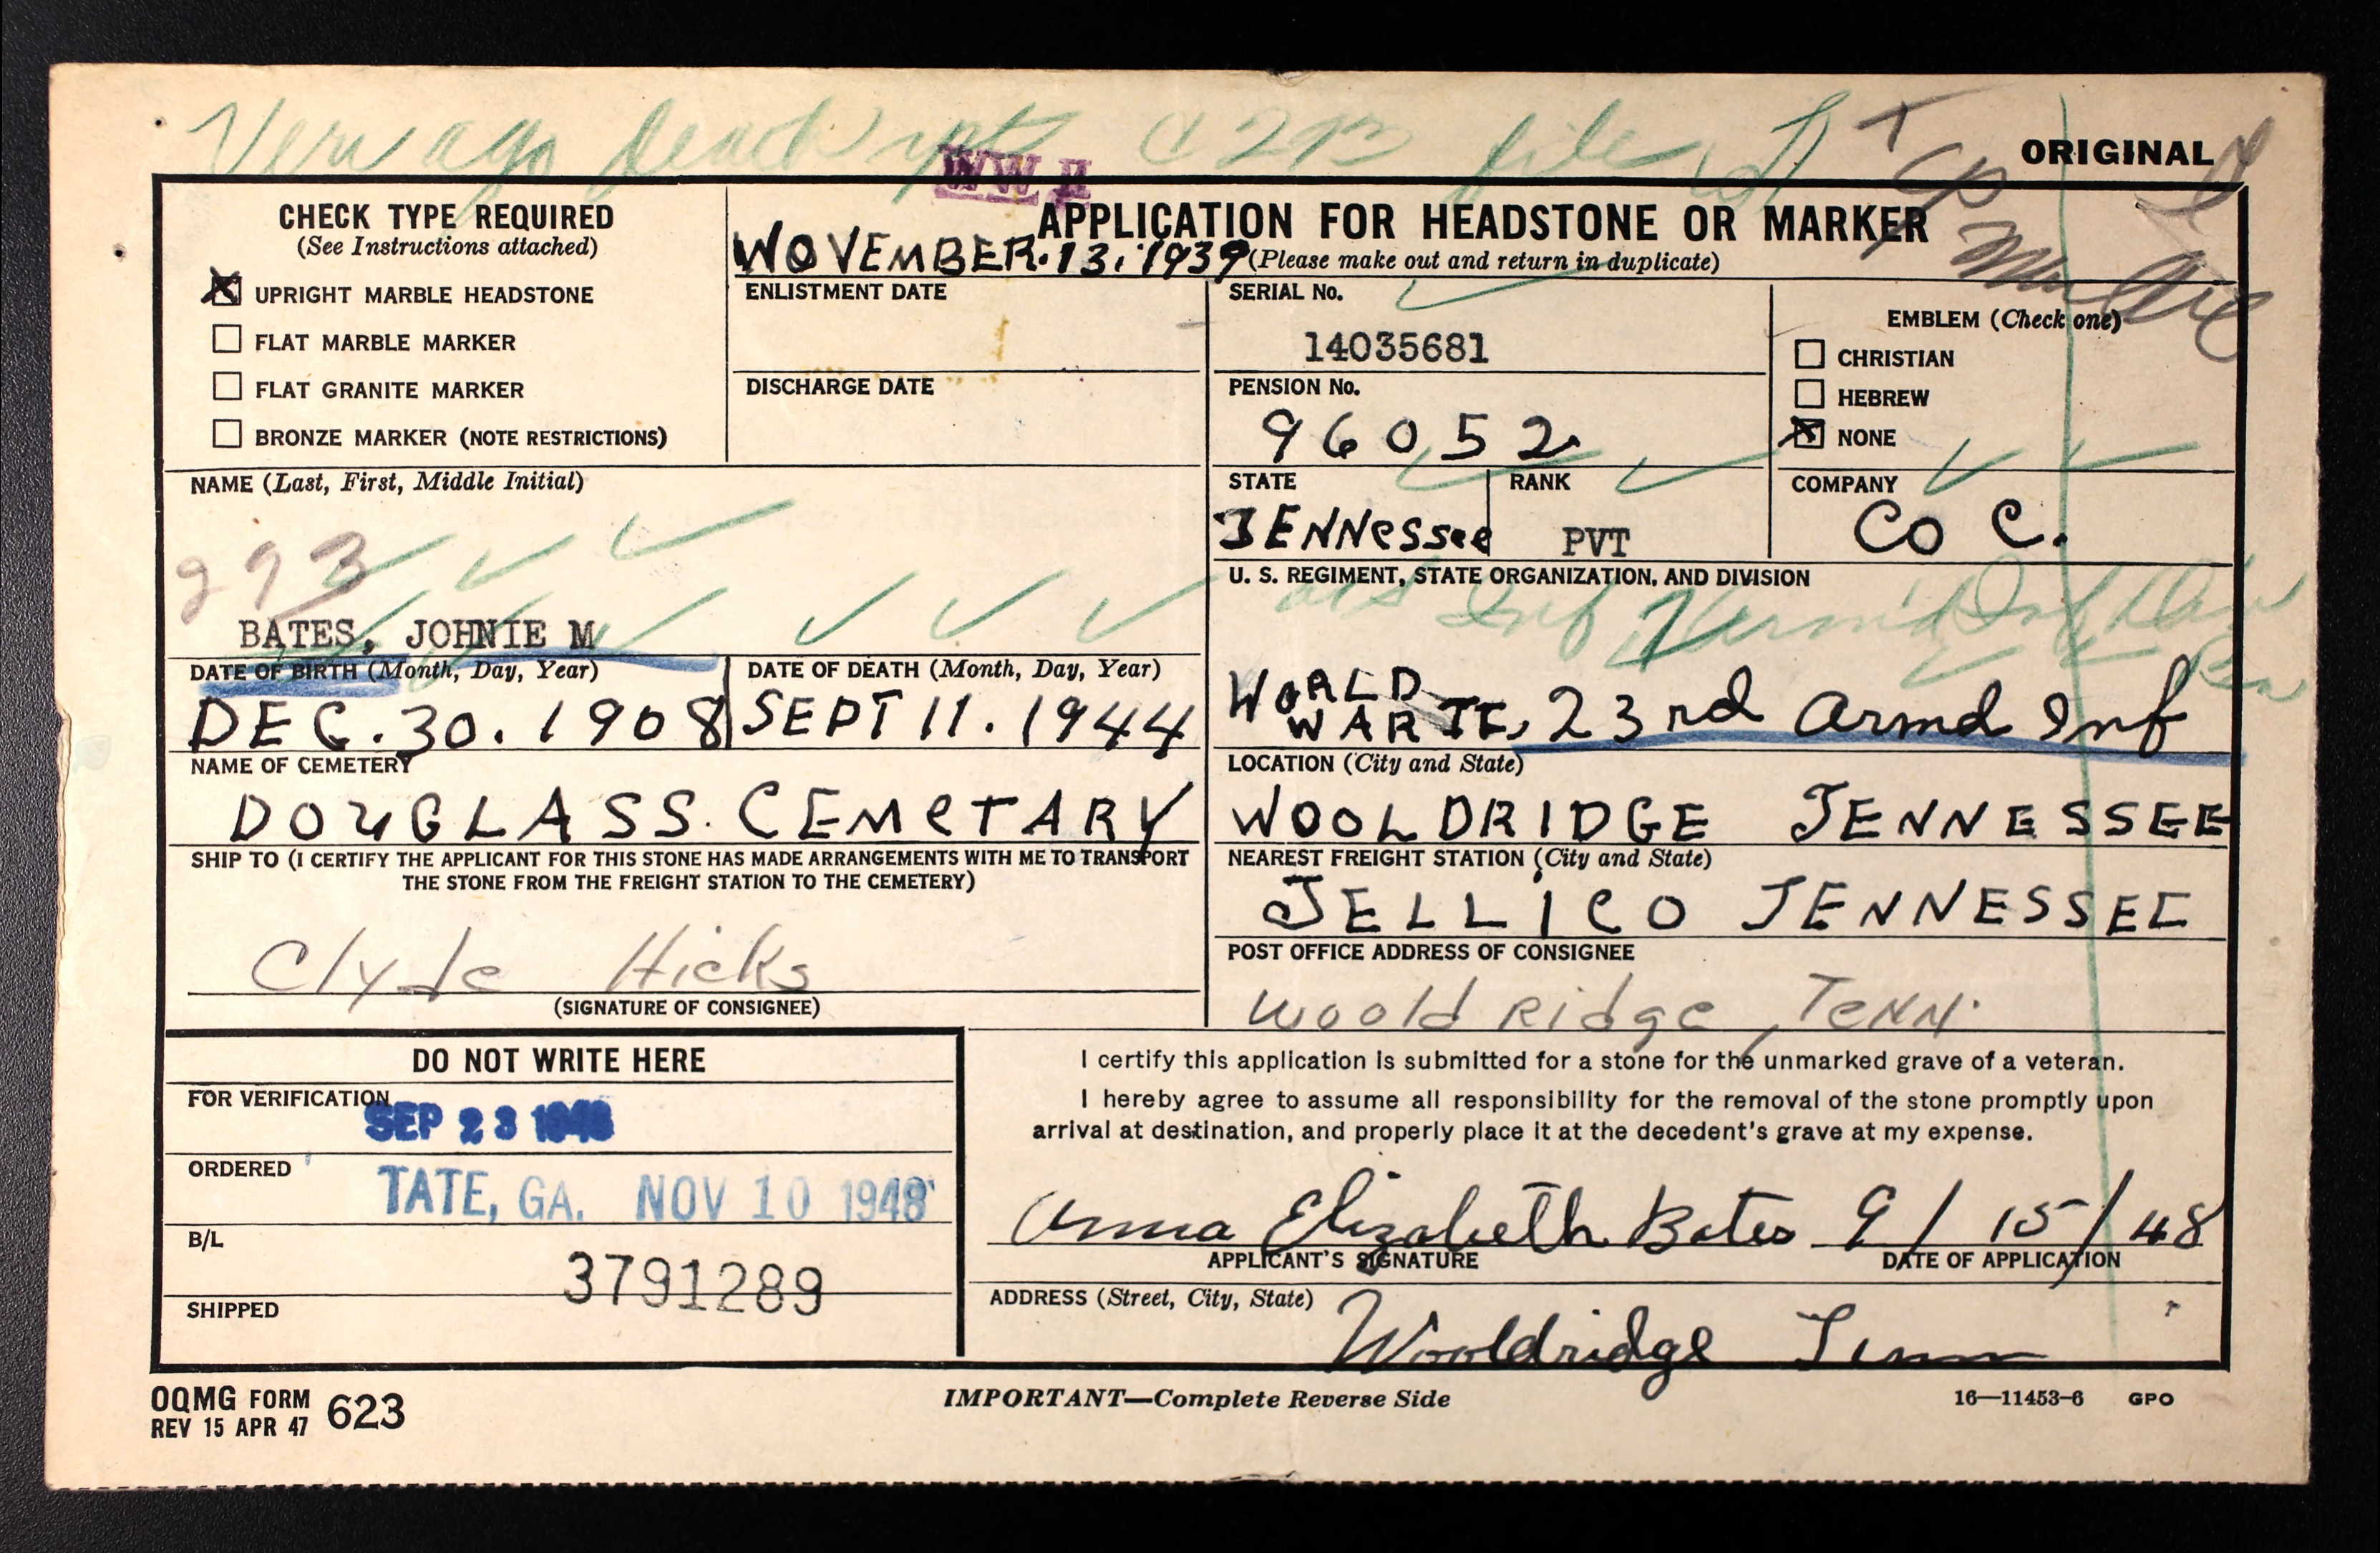 ORIGINAL
WW II
CHECK TYPE REQUIRED
(See Instructions attached)
UPRIGHT MARBLE HEADSTONE
FLAT MARBLE MARKER
FLAT GRANITE MARKER
BRONZE MARKER (NOTE RESTRICTIONS)
APPLICATION FOR HEADSTONE OR MARKER
WOVEMBER. 13. 1939 (Please make out and return in duplicate)
ENLISTMENT DATE
DISCHARGE DATE
SERIAL No.
14035681
PENSION No.
96052
EMBLEM (Check one)
CHRISTIAN
HEBREW
NONE
NAME (Last, First, Middle Initial)
293
BATES, JOHNIE M
STATE
TENNessee
RANK
PVT
COMPANY
CO C.
U. S. REGIMENT, STATE ORGANIZATION, AND DIVISION
WORLD
WAR II, 23rd Armd Inf
DATE OF BIRTH (Month, Day, Year)
DEC. 30. 1908
DATE OF DEATH (Month, Day, Year)
SEPT 11. 1944
NAME OF CEMETERY
DOUGLASS. CEMeTARY
LOCATION (City and State)
WOOLDRIDGE TENNESSEE
SHIP TO (I CERTIFY THE APPLICANT FOR THIS STONE HAS MADE ARRANGEMENTS WITH ME TO TRANSPORT
THE STONE FROM THE FREIGHT STATION TO THE CEMETERY)
Clyde Hicks
(SIGNATURE OF CONSIGNEE)
NEAREST FREIGHT STATION (City and State)
JELLICO TENNESSEE
POST OFFICE ADDRESS OF CONSIGNEE
Woold Ridge, TeNN.
DO NOT WRITE HERE
FOR VERIFICATION
SEP 23 1948
ORDERED
TATE, GA. NOV 10 1948
B/L
3791289
SHIPPED
I certify this application is submitted for a stone for the unmarked grave of a veteran.
I hereby agree to assume all responsibility for the removal of the stone promptly upon
arrival at destination, and properly place it at the decedent's grave at my expense.
Anna Elizabeth Bates 9/15/48
APPLICANT'S SIGNATURE
DATE OF APPLICATION
ADDRESS (Street, City, State)
Wooldridge Tenn
OQMG FORM 623
REV 15 APR 47
IMPORTANT—Complete Reverse Side
16—11453-6 GPO